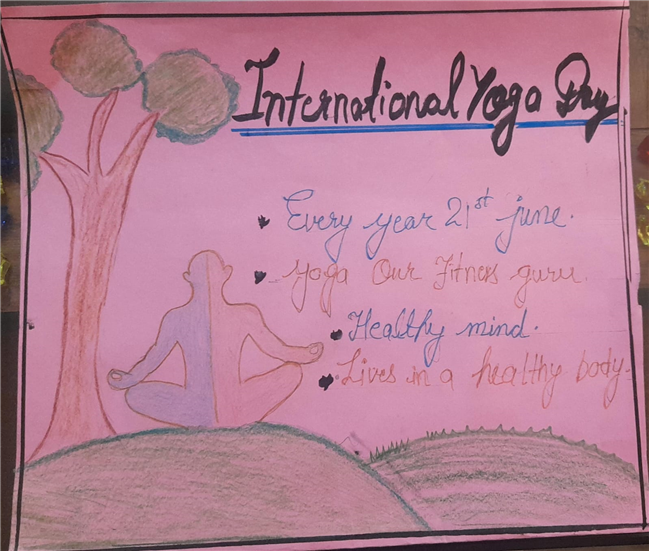 International Yoga Day
Every year 21st june.
Yoga Our Fitness guru.
Healthy mind.
Lives in a healthy body.